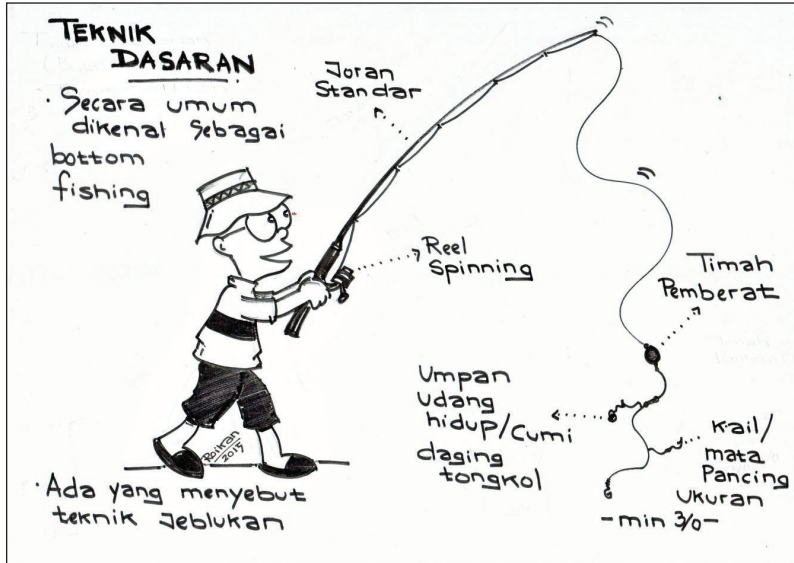 TEKNIK
DASARAN
· Secara umum
dikenal sebagai
bottom
fishing
Joran
Standar
Reel
Spinning
Timah
Pemberat
Umpan
udang
hidup/Cumi
daging
tongkol
Kail/
mata
Pancing
ukuran
-min 3/0-
Roikan
2015
· Ada yang menyebut
teknik Jeblukan